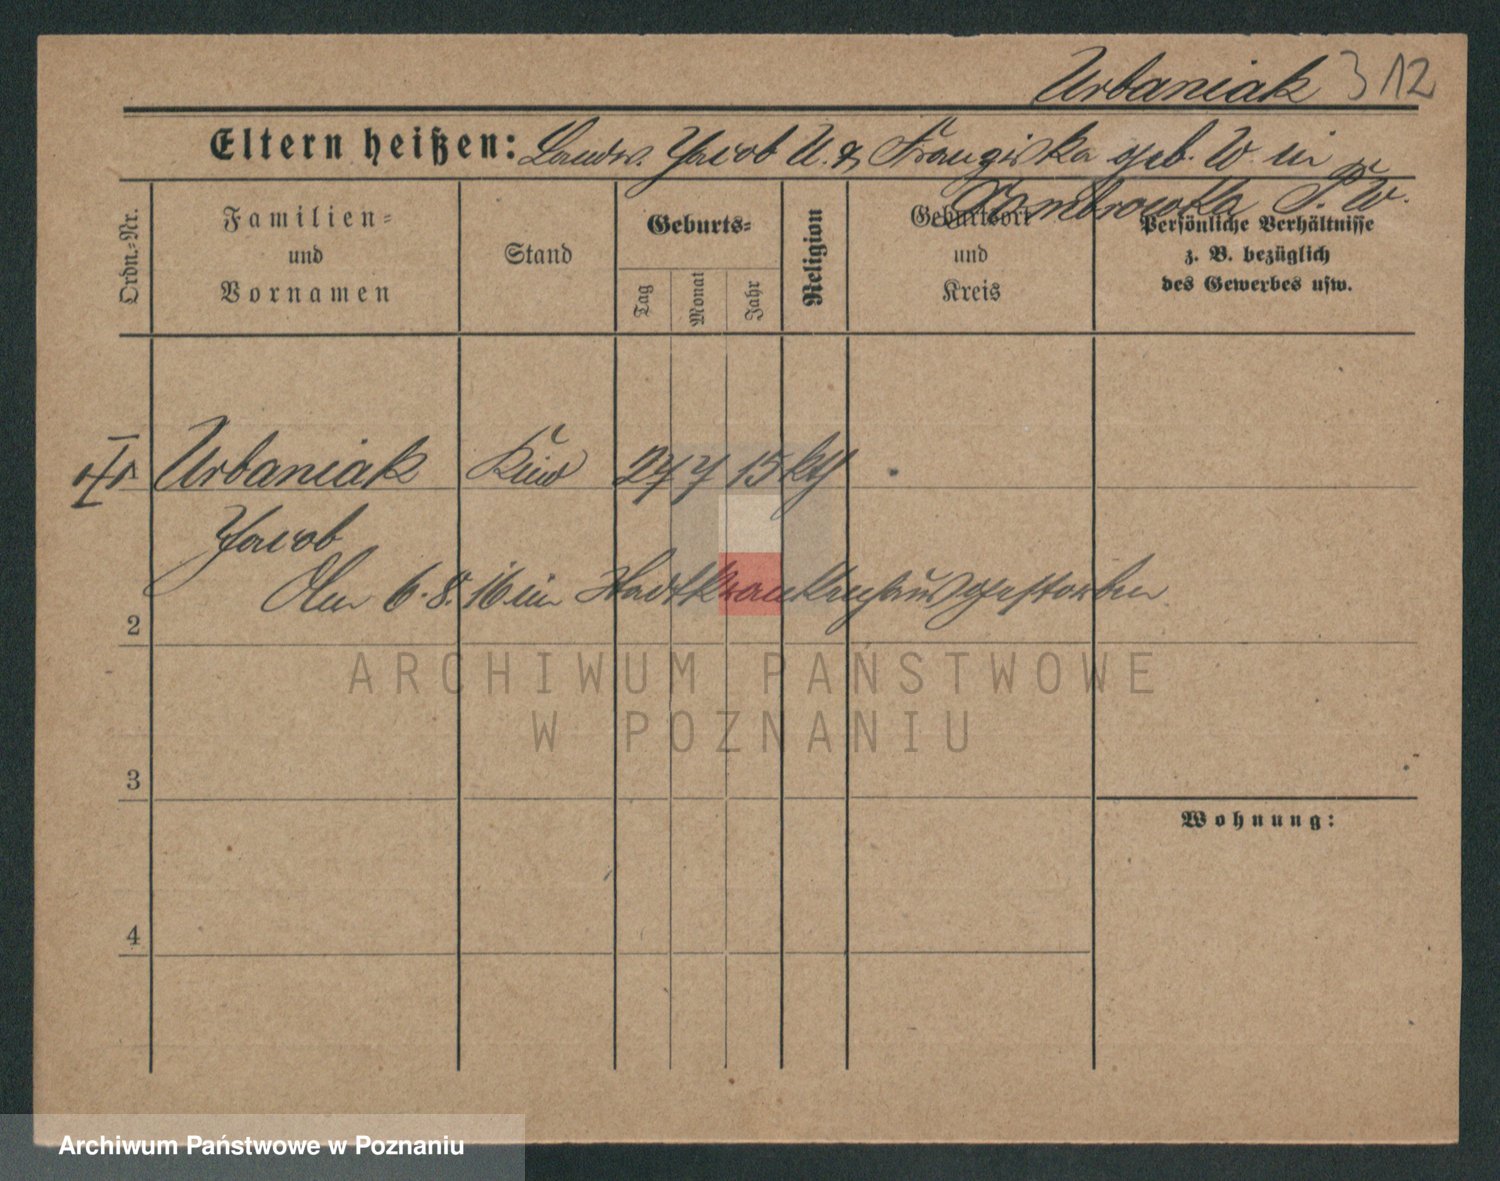 Urbaniak 312
Eltern heißen: Landw. Jacob U. & Franziska geb. W. in
Dombrowka P. W.
Ordn.-Nr.
Familien-
und
Vornamen
Stand
Geburts-
Tag
Monat
Jahr
Religion
Geburtsort
und
Kreis
Persönliche Verhältnisse
z. B. bezüglich
des Gewerbes usw.
Urbaniak Kind 27 7 15 kth
Jacob
Am 6.8.16 im Stadtkrankenhaus gestorben
2
ARCHIWUM PAŃSTWOWE
W POZNANIU
3
Wohnung:
4
Archiwum Państwowe w Poznaniu